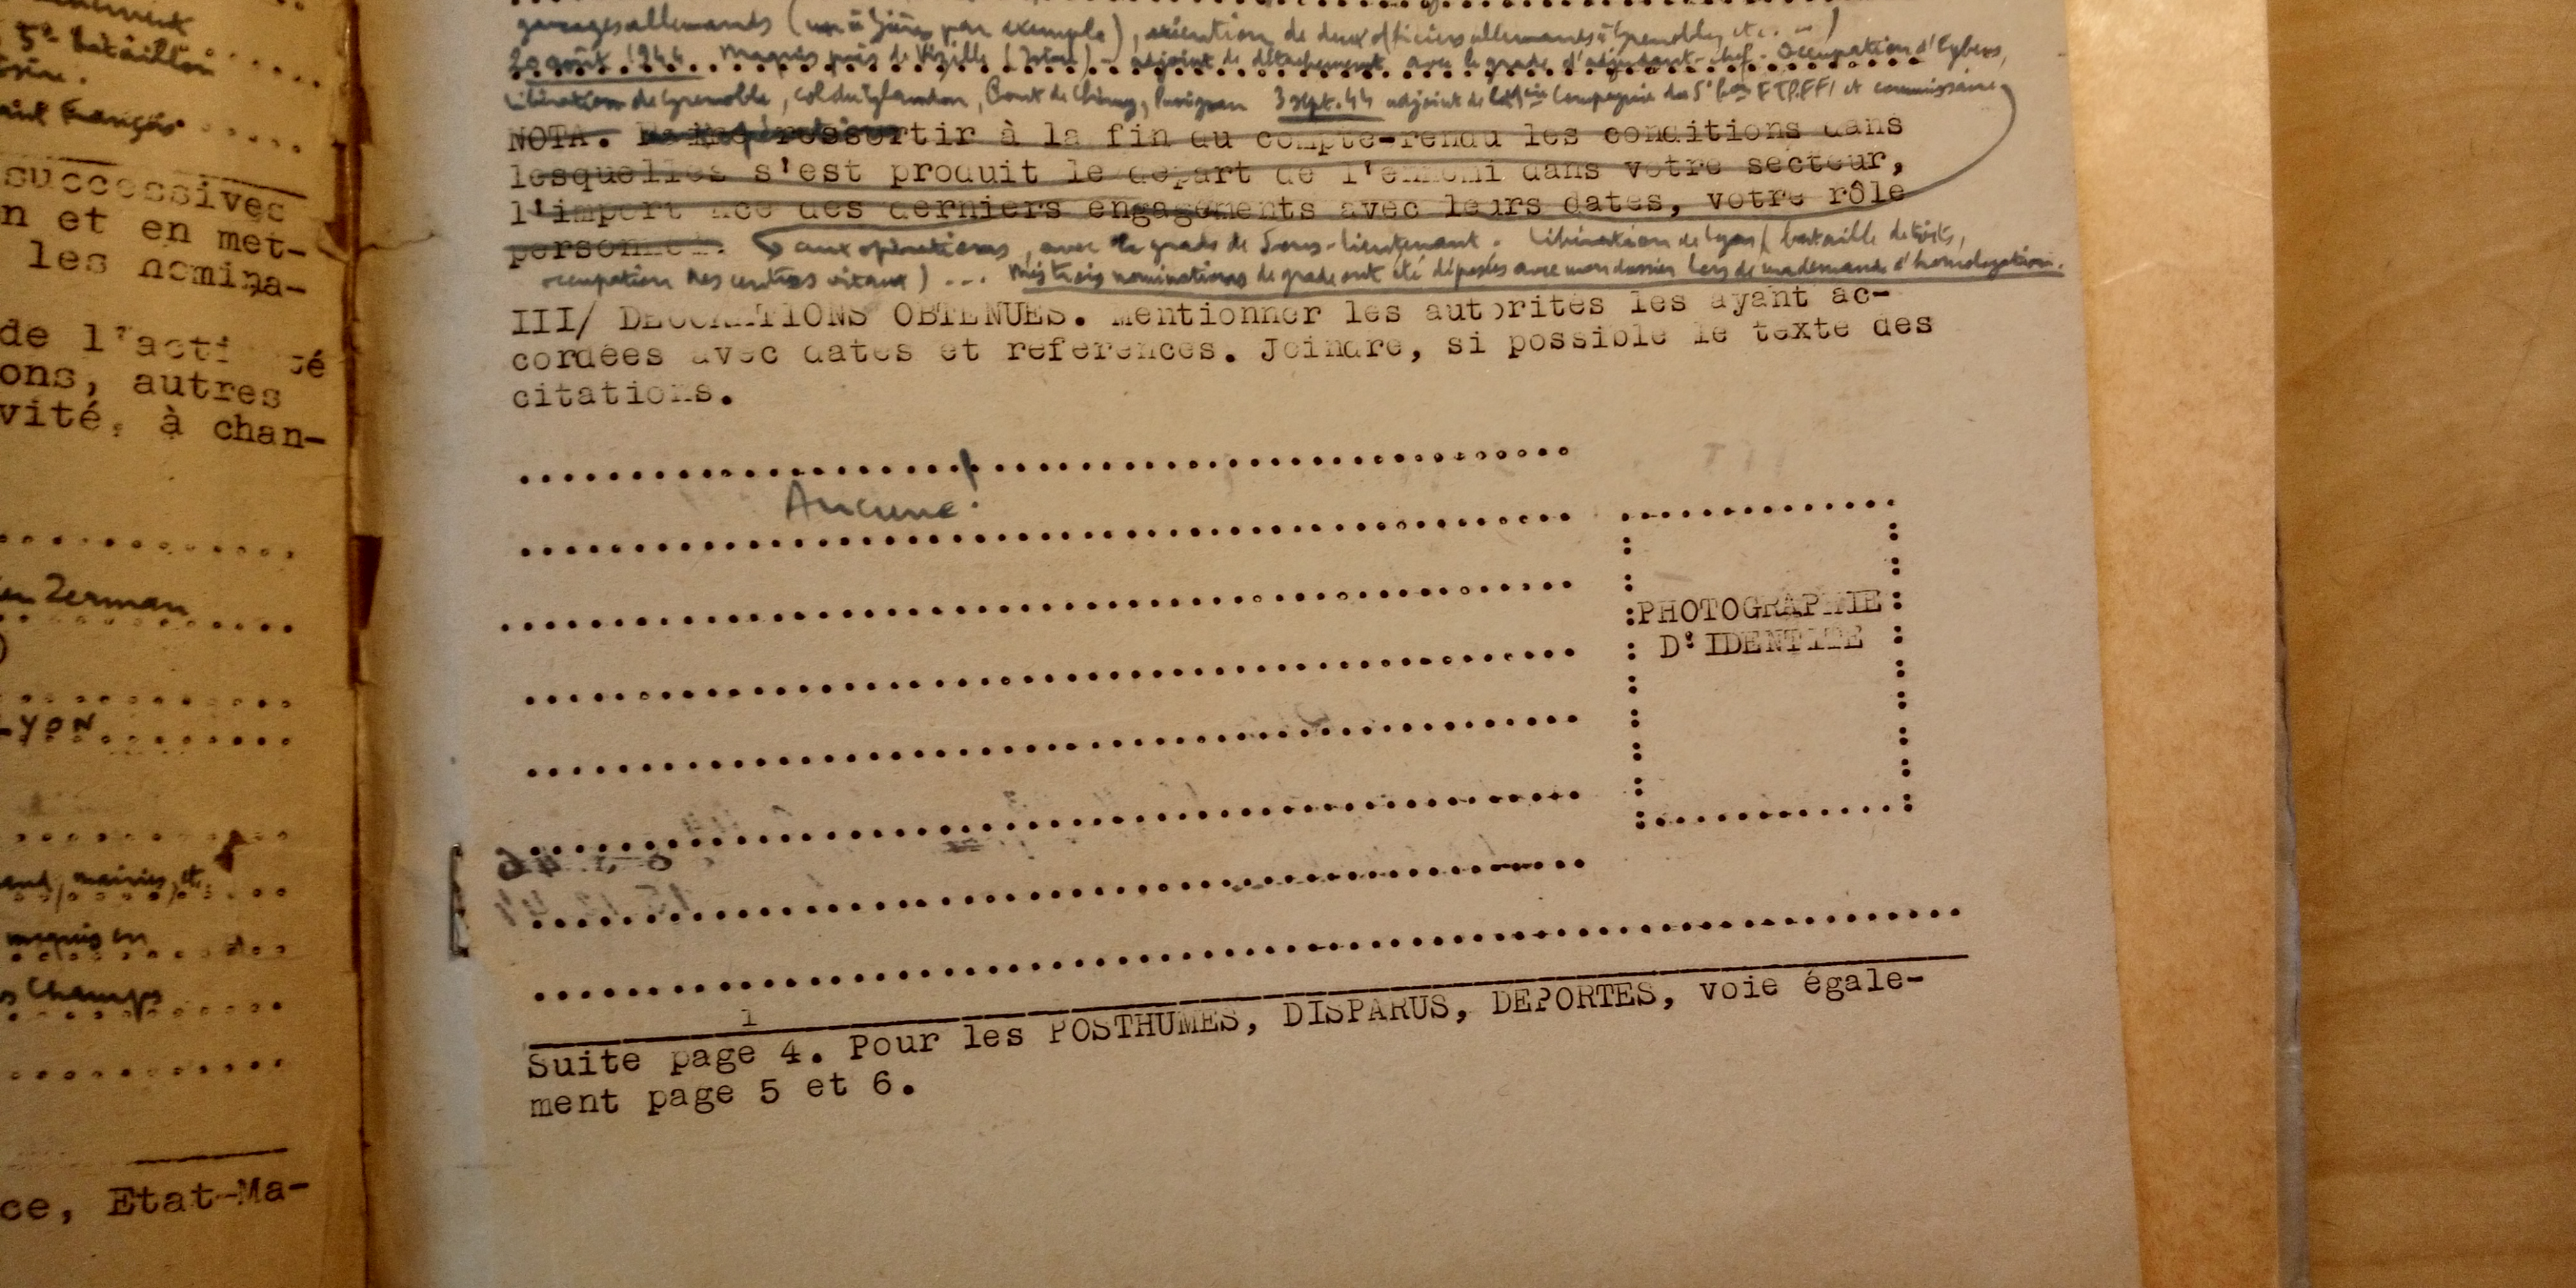 5e bataillon
Saint François
successives
n et en met-
les nomina-
de l'acti té
ons, autres
vité, à chan-
Zerman
LYON
mairies, etc.
maquis en
Champs
ce, Etat-Ma-
garages allemands (un à Gières par exemple), exécution de deux officiers allemands à Grenoble, etc. ...)
20 août 1944 Maquis près de Vizille (Isère) - adjoint de détachement avec le grade d'adjudant-chef - Occupation d'Eybens,
libération de Grenoble, col du Glandon, Pont de Chéruy, Pusignan 3 sept. 44 adjoint de la Compagnie du 5e bon FTPFFI et commissaire
NOTA. ressortir à la fin du compte-rendu les conditions dans
lesquelles s'est produit le départ de l'ennemi dans votre secteur,
l'importance des derniers engagements avec leurs dates, votre rôle
personnel. aux opérations, avec le grade de Sous-lieutenant. Libération de Lyon (bataille de toits,
occupation des centres vitaux) ... Mes trois nominations de grade ont été déposées avec mon dossier lors de ma demande d'homologation.
III/ DECORATIONS OBTENUES. Mentionner les autorités les ayant ac-
cordées avec dates et références. Joindre, si possible le texte des
citations.
Aucune!
PHOTOGRAPHIE
D'IDENTITE
Suite page 4. Pour les POSTHUMES, DISPARUS, DEPORTES, voie égale-
ment page 5 et 6.